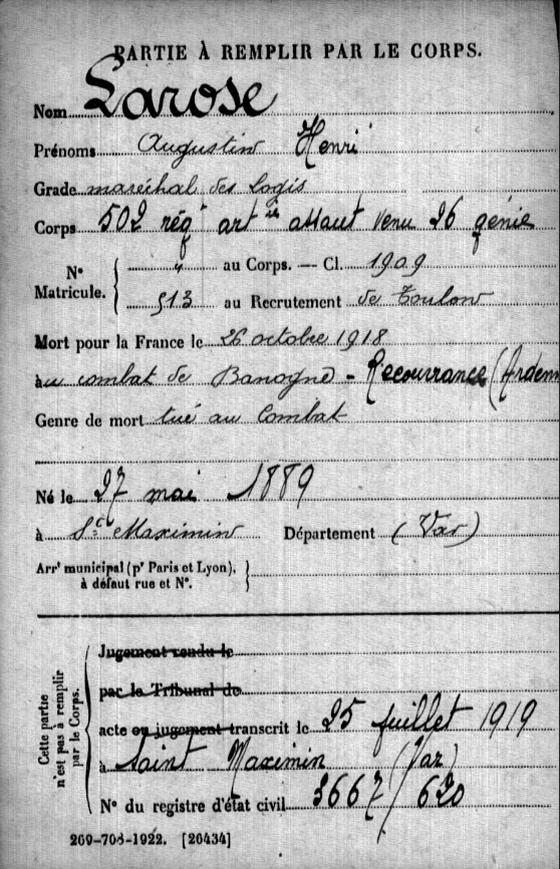 PARTIE À REMPLIR PAR LE CORPS.
Nom Larose
Prénoms Augustin Henri
Grade maréchal des logis
Corps 502 régt art ie assaut venu 26 génie
N° Matricule. " au Corps. — Cl. 1909
513 au Recrutement de Toulon
Mort pour la France le 26 octobre 1918
au combat de Banogne - Recouvrance (Ardenn
Genre de mort tué au Combat
Né le 27 mai 1889
à St Maximin Département (Var)
Arrt municipal (pr Paris et Lyon),
à défaut rue et N°.
Cette partie
n'est pas à remplir
par le Corps.
Jugement rendu le
par le Tribunal de
acte ou jugement transcrit le 25 juillet 1919
à Saint Maximin (Var)
N° du registre d'état civil 3667/620
269-708-1922. [26434]